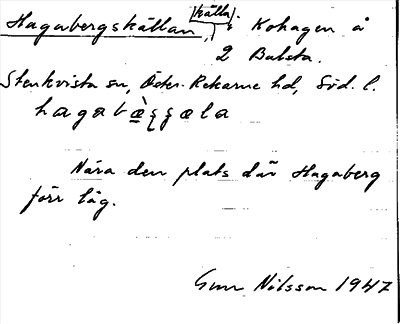 Hagabergskällan, (källa). i Kohagen å
2 Balsta.
Stenkvista sn, Öster-Rekarne hd, Söd. l.
Nära den plats där Hagaberg
förr låg.
Gun Nilsson 1947